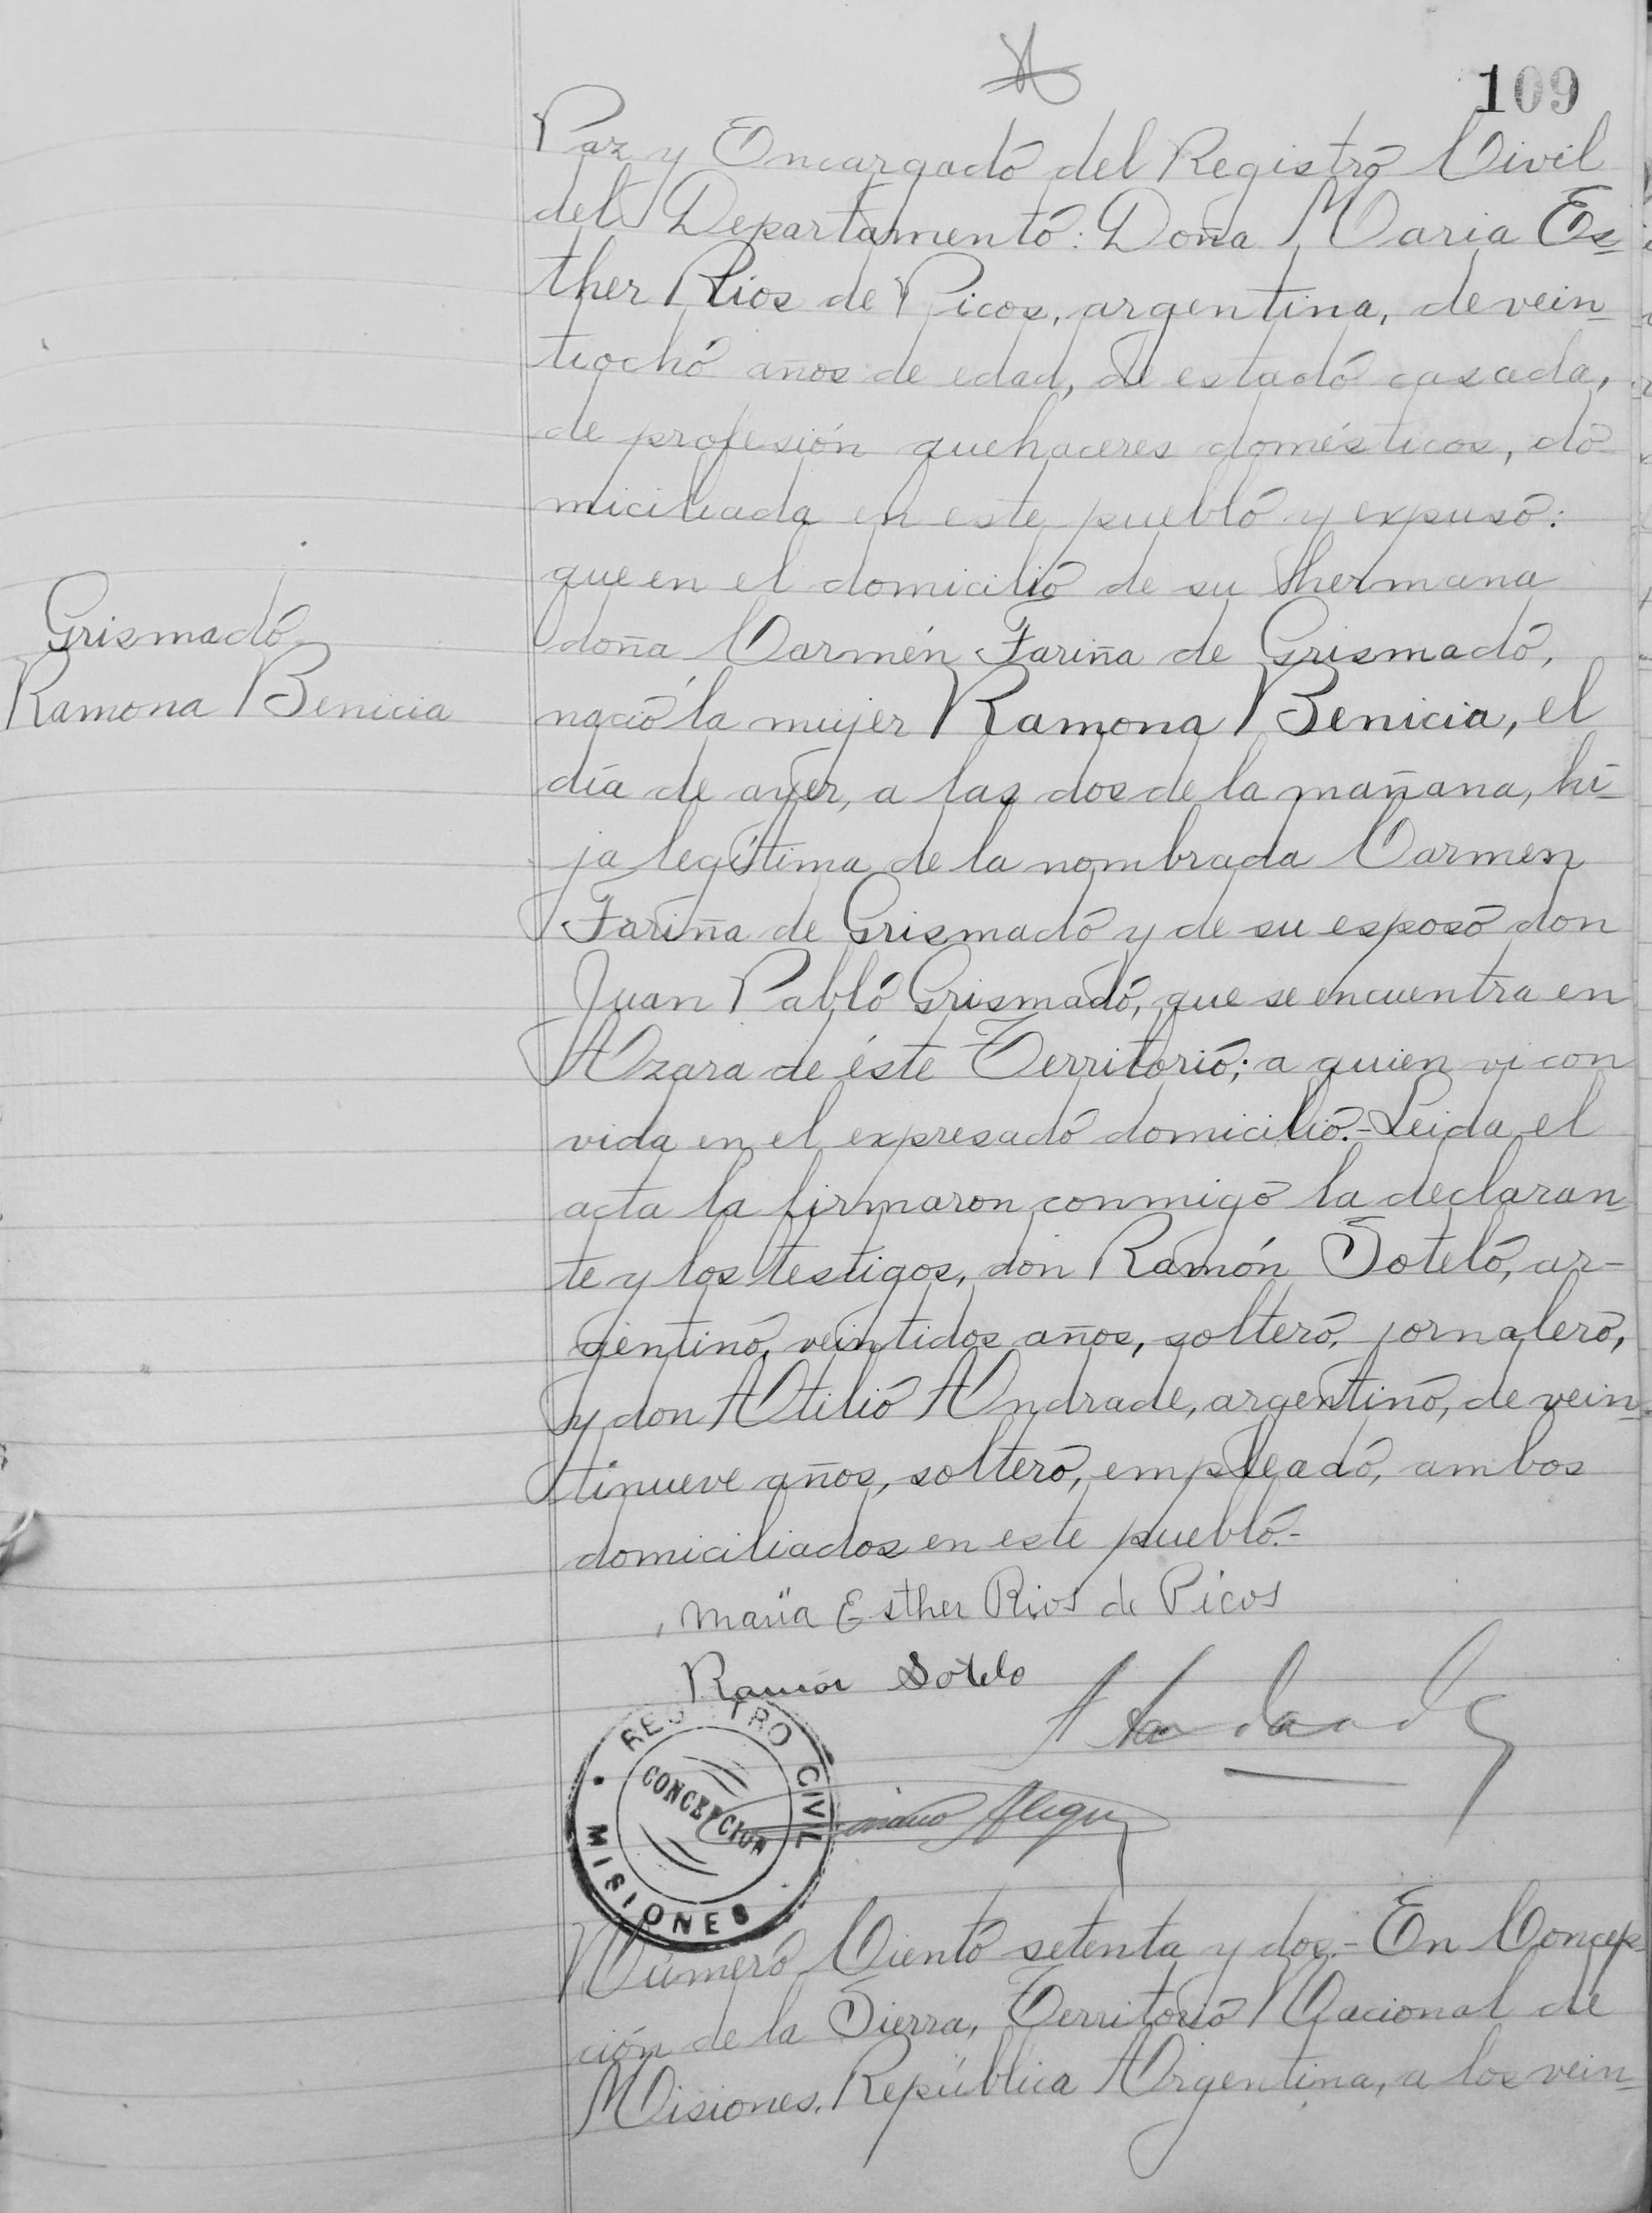 109
Paz y Encargadó del Registró Civil
del Departamentó: Doña Maria Es-
ther Rios de Picos, argentina, de vein-
tiochó años de edad, de estadó casada,
de profesión quehaceres domésticos, do-
miciliada en este pueblo y expusó:
que en el domicilió de su hermana
doña Carmén Fariña de Grismadó,
Grismadó
Ramona Benicia
nació la mujer Ramona Benicia, el
día de ayer, a las dos de la mañana, hi-
ja legítima de la nombrada Carmen
Fariña de Grismadó y de su esposó don
Juan Pabló Grismadó, que se encuentra en
Azara de éste Territorió; a quien vi con
vida en el expresadó domicilió.- Leida el
acta la firmaron conmigó la declaran-
te y los testigos, don Ramón Soteló, ar-
gentinó, veintidos años, solteró, jornaleró,
y don Atilió Andrade, argentinó, de vein-
tinueve años, solteró, empleadó, ambos
domiciliados en este puebló.-
María Esther Rios de Picos
Ramón Sotelo
REGISTRO CIVIL
CONCEPCION
MISIONES
Númeró Cientó setenta y dos.- En Concep-
ción de la Sierra, Territorió Nacional de
Misiones, República Argentina, a los vein-